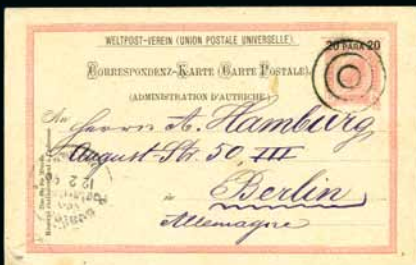 WELTPOST-VEREIN (UNION POSTALE UNIVERSELLE).
20 PARA 20
CORRESPONDENZ-KARTE (CARTE POSTALE).
(ADMINISTRATION D'AUTRICHE)
An
Herrn A. Hamburg
August-Str. 50, III
in
Berlin
Allemagne
12 2